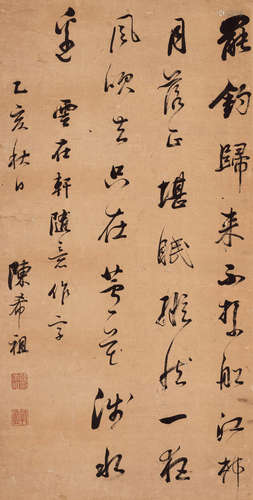 罷釣歸來不系船江村
月落正堪眠縱然一夜
風吹去只在蘆花淺水
邊
雲在軒隨意作字
乙亥秋日
陳希祖